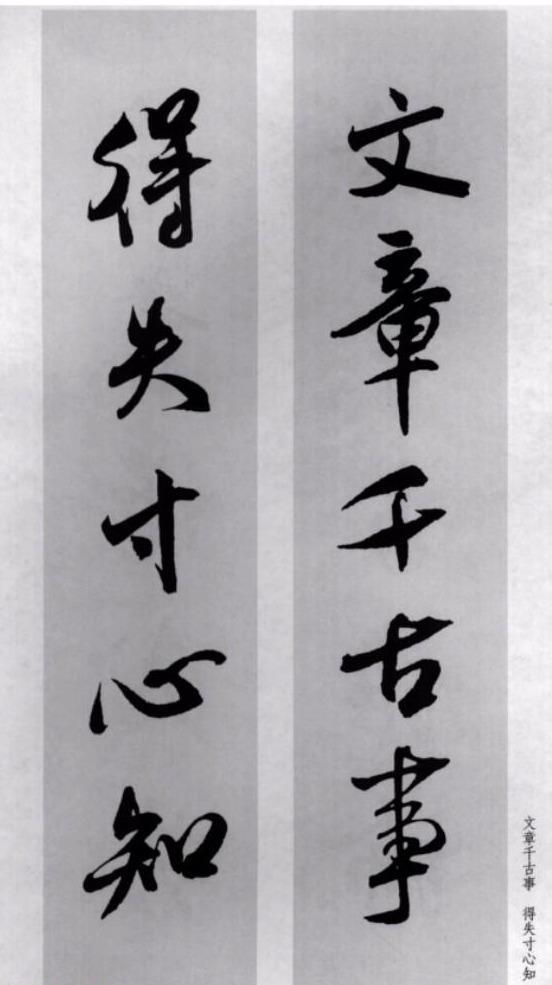 文章千古事
得失寸心知
文章千古事　得失寸心知